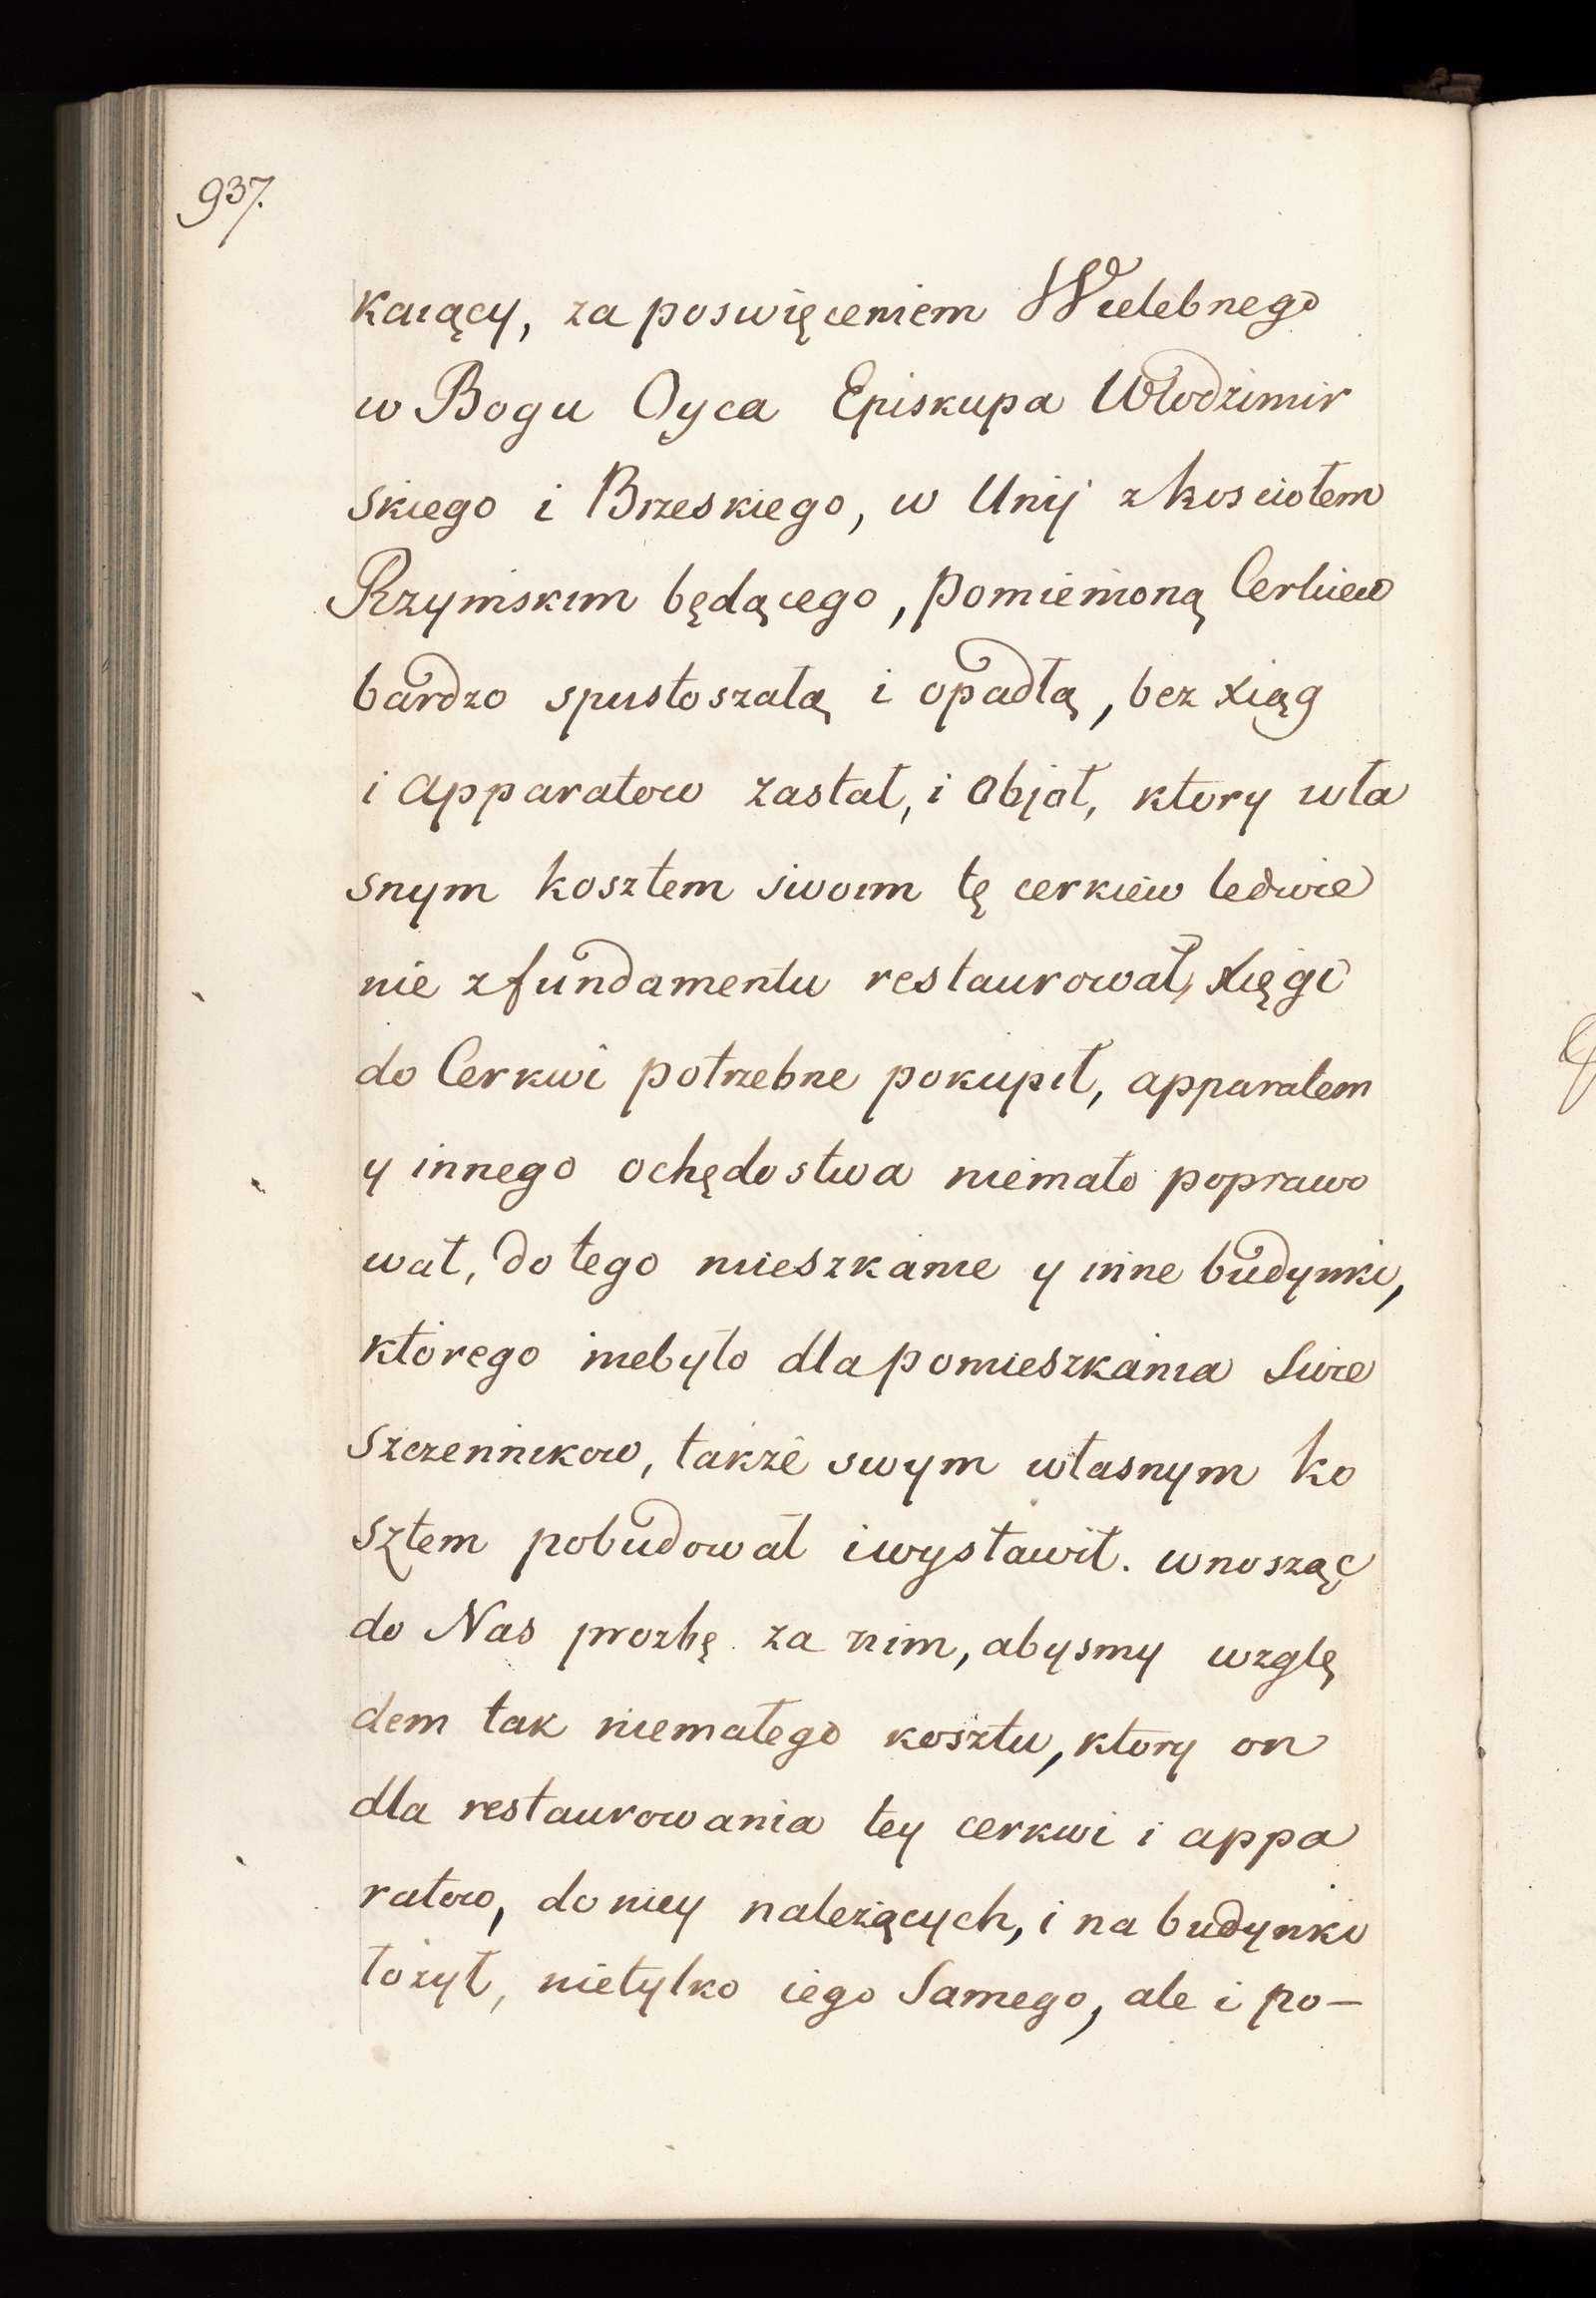 937.
kaiący, za poswięceniem Wielebnego
w Bogu Oyca Episkupa Włodzimir
skiego i Brzeskiego, w Unij z kosciołem
Rzymskim będącego, pomienioną Cerkiew
bardzo spustoszałą i opadłą, bez xiąg
i apparatow zastał, i objoł, ktory wła
snym kosztem swoim tę cerkiew ledwie
nie z fundamentu restaurował, xięgi
do Cerkwi potrzebne pokupił, apparatem
y innego ochędostwa niemało poprawo
wał, do tego mieszkanie y inne budynki,
ktorego niebyło dla pomieszkania Swie
szczennikow, także swym własnym ko
sztem pobudował i wystawił. wnosząc
do Nas prozbę za nim, abysmy wzglę
dem tak niemałego kosztu, ktory on
dla restaurowania tey cerkwi i appa
ratow, do niey należących, i na budynki
łożył, nietylko iego Samego, ale i po-